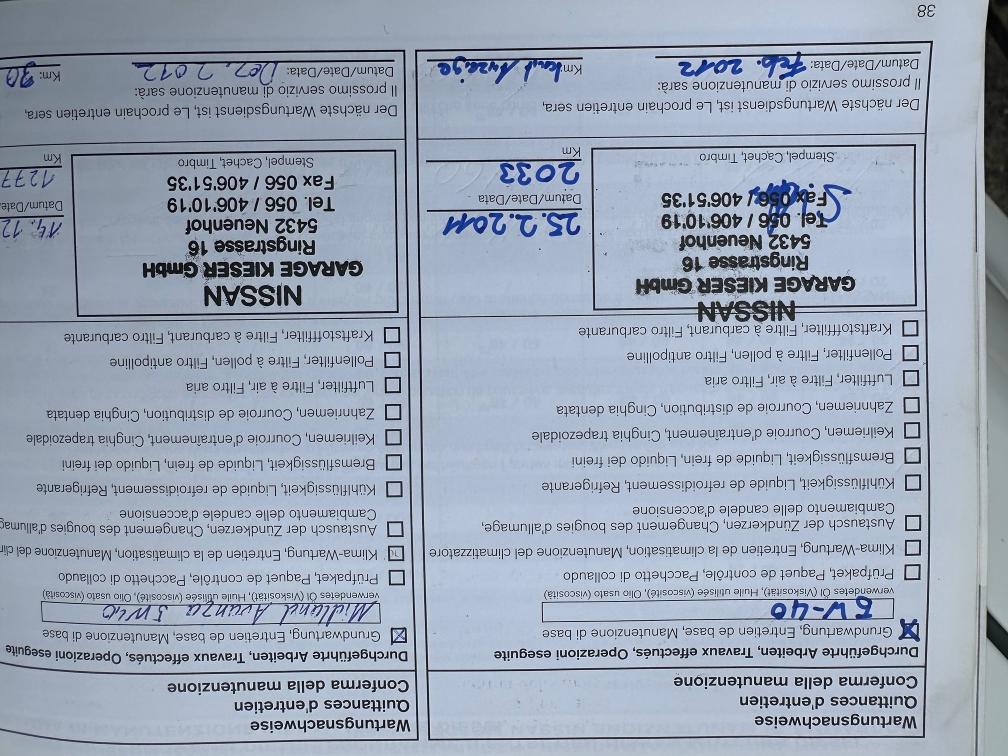 Wartungsnachweise
Quittances d'entretien
Conferma della manutenzione
Durchgeführte Arbeiten, Travaux effectués, Operazioni eseguite
Grundwartung, Entretien de base, Manutenzione di base
5W-40
verwendetes Öl (Viskosität), Huile utilisée (viscosité), Olio usato (viscosità)
Prüfpaket, Paquet de contrôle, Pacchetto di collaudo
Klima-Wartung, Entretien de la climatisation, Manutenzione del climatizzatore
Austausch der Zündkerzen, Changement des bougies d'allumage,
Cambiamento delle candele d'accensione
Kühlflüssigkeit, Liquide de refroidissement, Refrigerante
Bremsflüssigkeit, Liquide de frein, Liquido dei freini
Keilriemen, Courroie d'entraînement, Cinghia trapezoidale
Zahnriemen, Courroie de distribution, Cinghia dentata
Luftfilter, Filtre à air, Filtro aria
Pollenfilter, Filtre à pollen, Filtro antipolline
Kraftstofffilter, Filtre à carburant, Filtro carburante
NISSAN
GARAGE KIESER GmbH
Ringstrasse 16
5432 Neuenhof
Tel. 056 / 406'10'19
Fax 056 / 406'51'35
Stempel, Cachet, Timbro
25.2.2011
Datum/Date/Data
2033
Km
Der nächste Wartungsdienst ist, Le prochain entretien sera,
Il prossimo servizio di manutenzione sarà:
Datum/Date/Data: Feb. 2012 Km: laut Anzeige
38
Wartungsnachweise
Quittances d'entretien
Conferma della manutenzione
Durchgeführte Arbeiten, Travaux effectués, Operazioni eseguite
Grundwartung, Entretien de base, Manutenzione di base
Midland Avanza 5W40
verwendetes Öl (Viskosität), Huile utilisée (viscosité), Olio usato (viscosità)
Prüfpaket, Paquet de contrôle, Pacchetto di collaudo
Klima-Wartung, Entretien de la climatisation, Manutenzione del
Austausch der Zündkerzen, Changement des bougies d'allumag
Cambiamento delle candele d'accensione
Kühlflüssigkeit, Liquide de refroidissement, Refrigerante
Bremsflüssigkeit, Liquide de frein, Liquido dei freini
Keilriemen, Courroie d'entraînement, Cinghia trapezoidale
Zahnriemen, Courroie de distribution, Cinghia dentata
Luftfilter, Filtre à air, Filtro aria
Pollenfilter, Filtre à pollen, Filtro antipolline
Kraftstofffilter, Filtre à carburant, Filtro carburante
NISSAN
GARAGE KIESER GmbH
Ringstrasse 16
5432 Neuenhof
Tel. 056 / 406'10'19
Fax 056 / 406'51'35
Stempel, Cachet, Timbro
14.12.
Datum/Date/
1277
Km
Der nächste Wartungsdienst ist, Le prochain entretien sera,
Il prossimo servizio di manutenzione sarà:
Datum/Date/Data: Dez. 2012 Km: 30